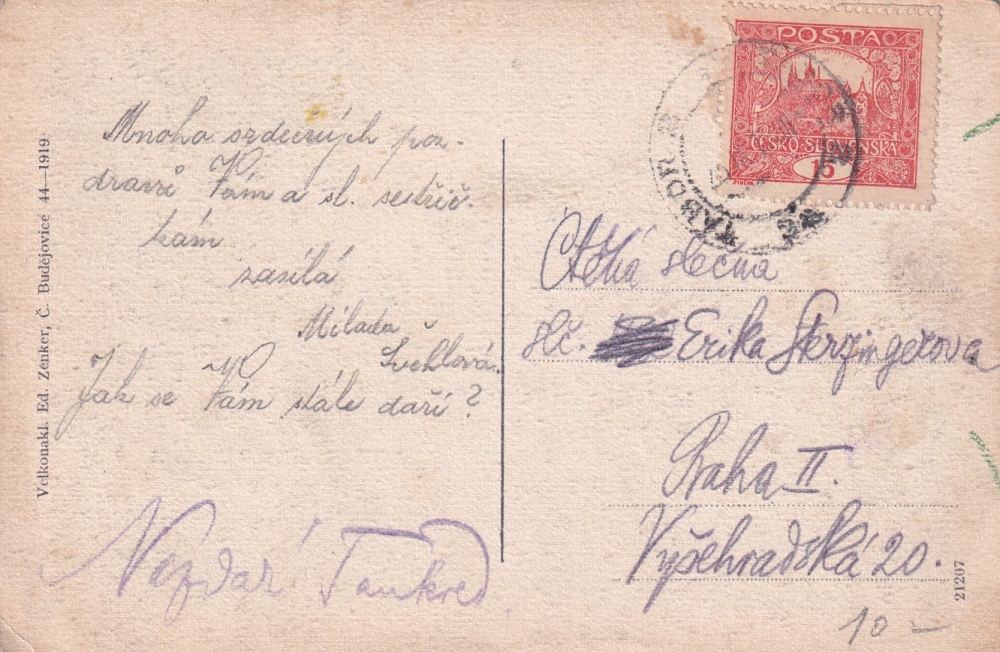 Velkonakl. Ed. Zenker, Č. Budějovice 44—1919
Mnoha srdečných po-
dravů Vám a sl. sestřič-
kám
zasílá
Milada
Švehlová.
Jak se Vám stále daří?
Nazdar! Tankred
POŠTA
ČESKO-SLOVENSKÁ
15
TÁBOR
Ctěná slečna
slč. Erika Sterzingerova
Praha II.
Vyšehradská 20.
21207
10 –